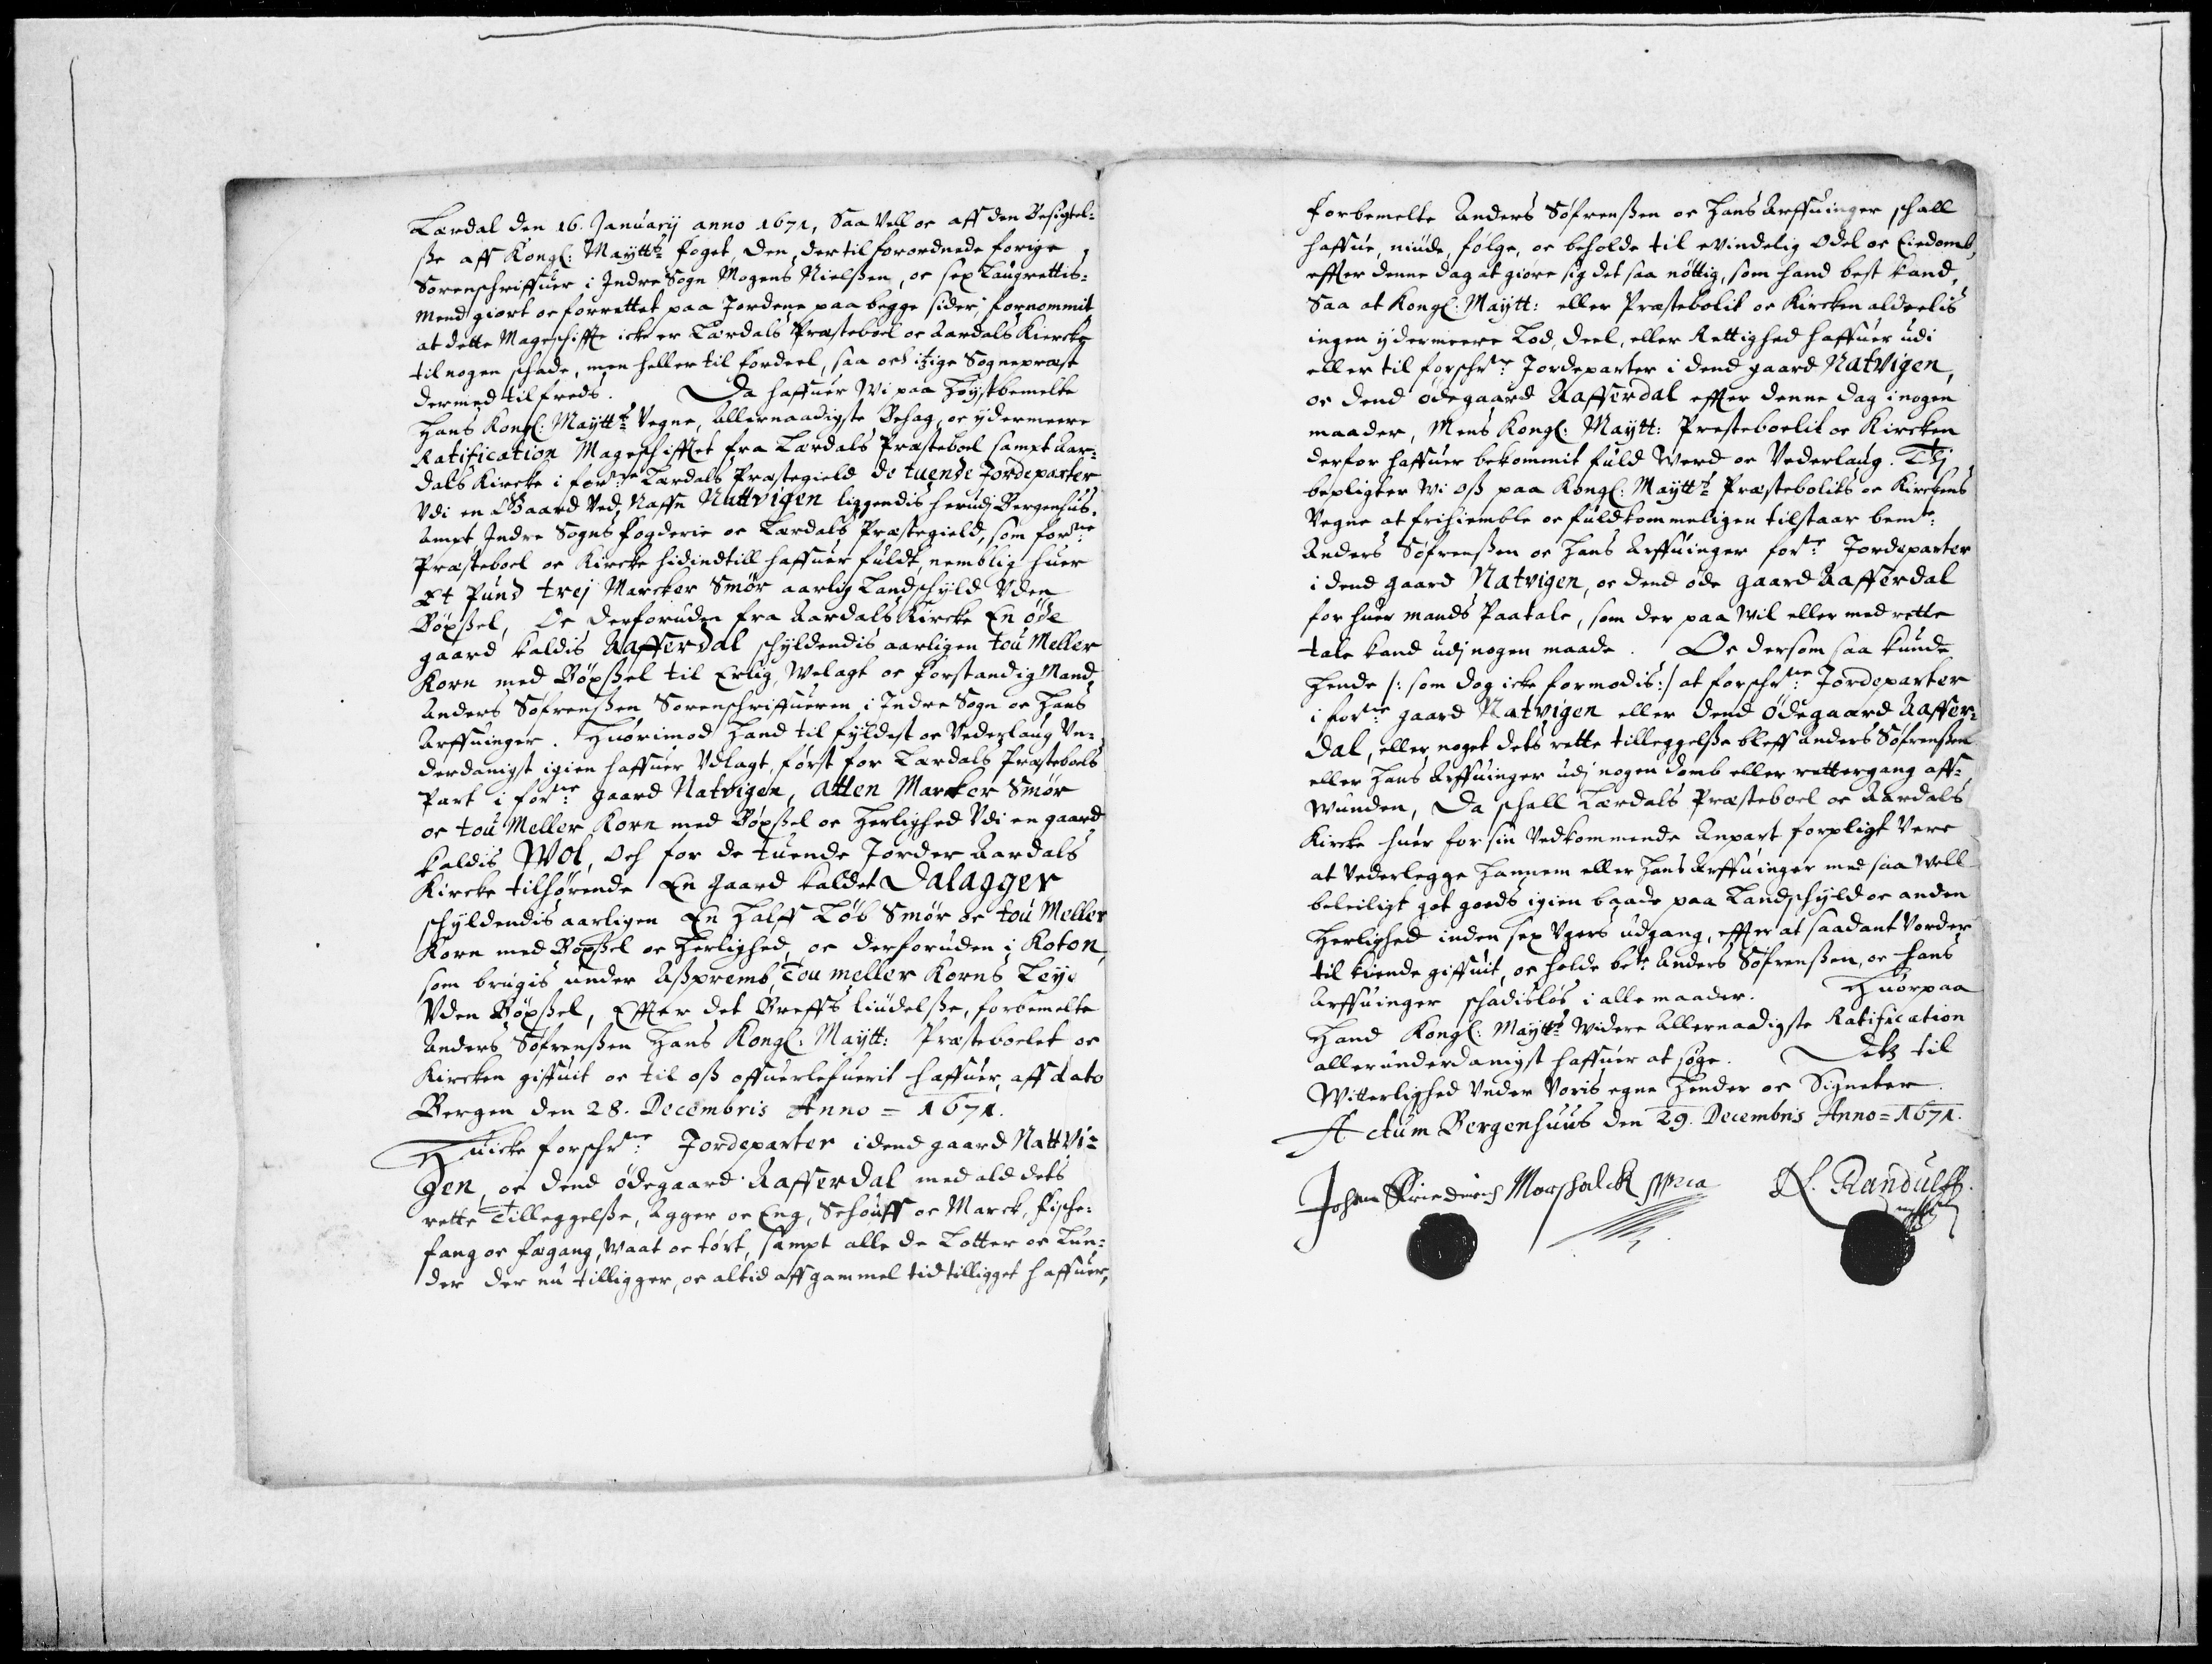 Lærdal den 16. Januarij anno 1671, Saa Vell oc aff den Besigtel-
sse aff Kongl: Maytts foget, den, dertil forordnede forige
Sorenschriffuer i Indre Sogn Mogens Nielssen, oc sex Laugrettis-
Mend giort oc forrettet paa Jordene paa begge sider, fornommit
at dette Mageschiffte icke er Lærdals Præsteboel oc Aardals Kiercke
til nogen schade, men heller til fordeel, saa och itzige Sognepræst
dermed tilfreds. Da haffuer Wi paa Høystbemelte
Hans Kongl: Maytts Vegne, Allernaadigste Behag, oc ydermeere
Ratification Mageschifftet fra Lærdals Præsteboel sampt Aar-
dals Kircke i forne Lærdals Præstegield de tuende Jordeparter
Vdi en Gaard Ved Naffn Nattvigen liggendis herudj Bergenhus-
Ampt Indre Sogns fogderie oc Lærdals Præstegield, som forne
Præsteboel oc Kircke hidindtill haffuer fuldt, nemblig huer
Et Pund trej Marcker Smør aarlig Landschyld Vden
Bøxssel, Oc derforuden fra Aardals Kircke En øde
gaard kaldis Aafferdal schyldendis aarligen tou Meller
Korn med Bøxssel til Erlig, Welagt oc forstandig Mand,
Anders Søfrenssen Sorenschriffueren i Indre Sogn oc Hans
Arffuinger. Huorimod Hand til fyldest oc Vederlaug Vn-
derdanigst igien haffuer Vdlagt, først for Lærdals Præsteboels
Part i forne gaard Natvigen, Atten Marcker Smør
oc tou Meller Korn med Bøxssel oc Herlighed Vdi en gaard
kaldis Wol, Och for de tuende Jorder Aardals
Kircke tilhørende En gaard kaldet Dalagger
schyldendis aarligen En Halff Løb Smør oc tou Meller
Korn med Bøxssel oc Herlighed, oc derforuden i Koton,
som brugis under Assprems, Tou meller Korns Leye
Vden Bøxssel, Effter det Breffs liudelsse, forbemelte
Anders Søfrenssen Hans Kongl: Maytt: Præsteboelet oc
Kircken giffuit oc til oss offuerlefuerit haffuer, aff dato
Bergen den 28. Decembris Anno = 1671.
Huicke forschrne Jordeparter i dend gaard Nattvi-
gen, oc dend ødegaard Aafferdal med ald dets
rette Tilleggelsse, Agger oc Eng, Schouff oc Marck, fische-
fang oc fægang, Waat oc tørt, sampt alle de Lotter oc Lun-
der der nu tilligger, oc altid aff gammel tid tilligget haffuer,
forbemelte Anders Søfrenssen oc Hans Arffuinger schall
haffue, niude, følge, oc beholde til evindelig Odel oc Eiedomb,
effter denne dag at giøre sig det saa nöttig, som hand best kand,
Saa at Kongl: Maytt: eller Præstebolit oc Kircken aldeelis
ingen ydermeere Lod, deel, eller Rettighed haffuer udi
eller til forschrne Jordeparter i dend gaard Natvigen,
oc dend ødegaard Aafferdal effter denne dag i nogen
maader, Mens Kongl: Maytt: Presteboelit oc Kircken
derfor haffuer bekommit fuld Werd oc Vederlaug. Thj
bepligter Wi oss paa Kongl: Maytts Præstebolits oc Kirckens
Vegne at frihiemble oc fuldkommeligen tilstaar bemte
Anders Söfrenssen oc Hans Arffuinger forne Jordeparter
i dend gaard Natvigen, oc dend øde gaard Aafferdal
for huer mands Paatale, som der paa Wil eller med rette
tale kand udj nogen maade. Oc dersom saa kunde
Hende /: som dog icke formodis :/ at forschrne Jordeparter
i forne gaard Natvigen eller dend Ødegaard Aaffer-
dal, eller noget dets rette tilleggelsse bleff Anders Söfrenssen
eller Hans Arffuinger udj nogen domb eller rettergang aff-
Wunden, Da schall Lærdals Præsteboel oc Aardals
Kircke huer for sin Vedkommende Anpart forpligt Vere
at Vederlegge Hannem eller Hans Arffuinger med saa Well
beleiligt got goeds igien baade paa Landschyld oc anden
Herlighed inden sex Ugers udgang, effter at saadant Vorder
til kiende giffuit, oc holde bete Anders Söfrenssen, oc Hans
Arffuinger schadisløs i alle maader. Huorpaa
Hand Kongl: Maytts Widere Allernaadigste Ratification
allerunderdanigst haffuer at søge. Dets til
Witterlighed Under Voris egne Hender oc Signeter.
Actum Bergenhuus den 29. Decembris Anno = 1671.
Johan Friederich Marschalck mppria N. Randulff